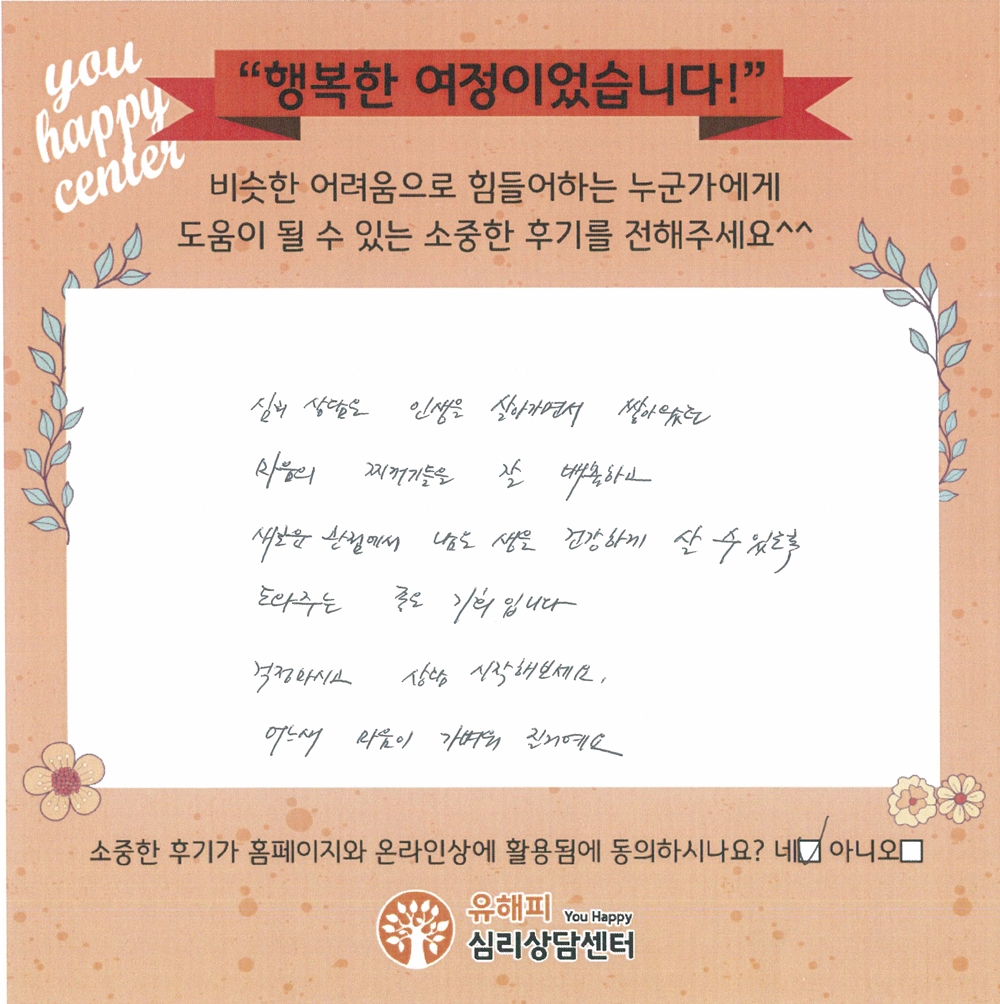 you
happy
center
“행복한 여정이었습니다!”
비슷한 어려움으로 힘들어하는 누군가에게
도움이 될 수 있는 소중한 후기를 전해주세요^^
심리 상담은 인생을 살아가면서 쌓아왔던
마음의 찌꺼기들을 잘 배출하고
새로운 관점에서 남은 생을 건강하게 살 수 있도록
도와주는 좋은 기회입니다
걱정마시고 상담 시작해보세요.
어느새 마음이 가벼워 질거예요
소중한 후기가 홈페이지와 온라인상에 활용됨에 동의하시나요? 네 아니오
유해피 You Happy
심리상담센터